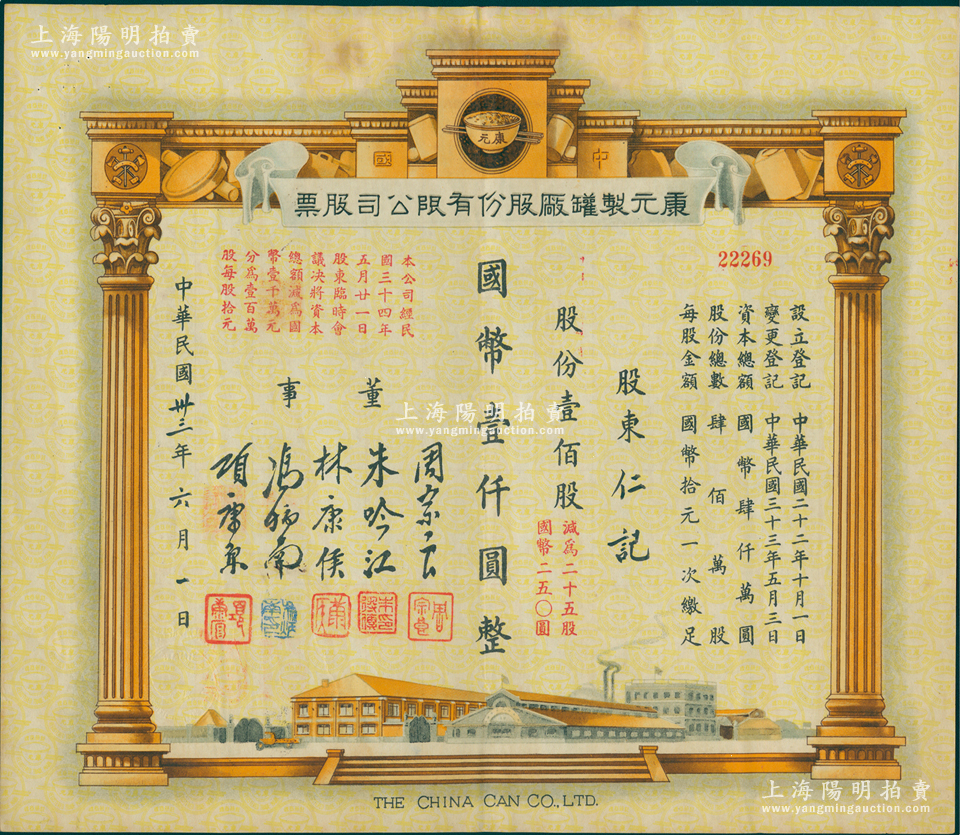 上海陽明拍賣
www.yangmingauction.com
康元
中國
康元製罐廠股份有限公司股票
22269
設立登記 中華民國二十二年十月一日
變更登記 中華民國三十三年五月三日
資本總額 國幣肆仟萬圓
股份總數 肆佰萬股
每股金額 國幣拾元一次繳足
股東仁記
股份壹佰股
減為二十五股
國幣二五〇圓
國幣壹仟圓整
本公司經民
國三十四年
五月廿一日
股東臨時會
議決將資本
總額減為國
幣壹千萬元
分為壹百萬
股每股拾元
董事
朱吟江
林康侯
項康原
中華民國卅三年六月一日
上海陽明拍賣
www.yangmingauction.com
THE CHINA CAN CO., LTD.
上海陽明拍賣
www.yangmingauction.com